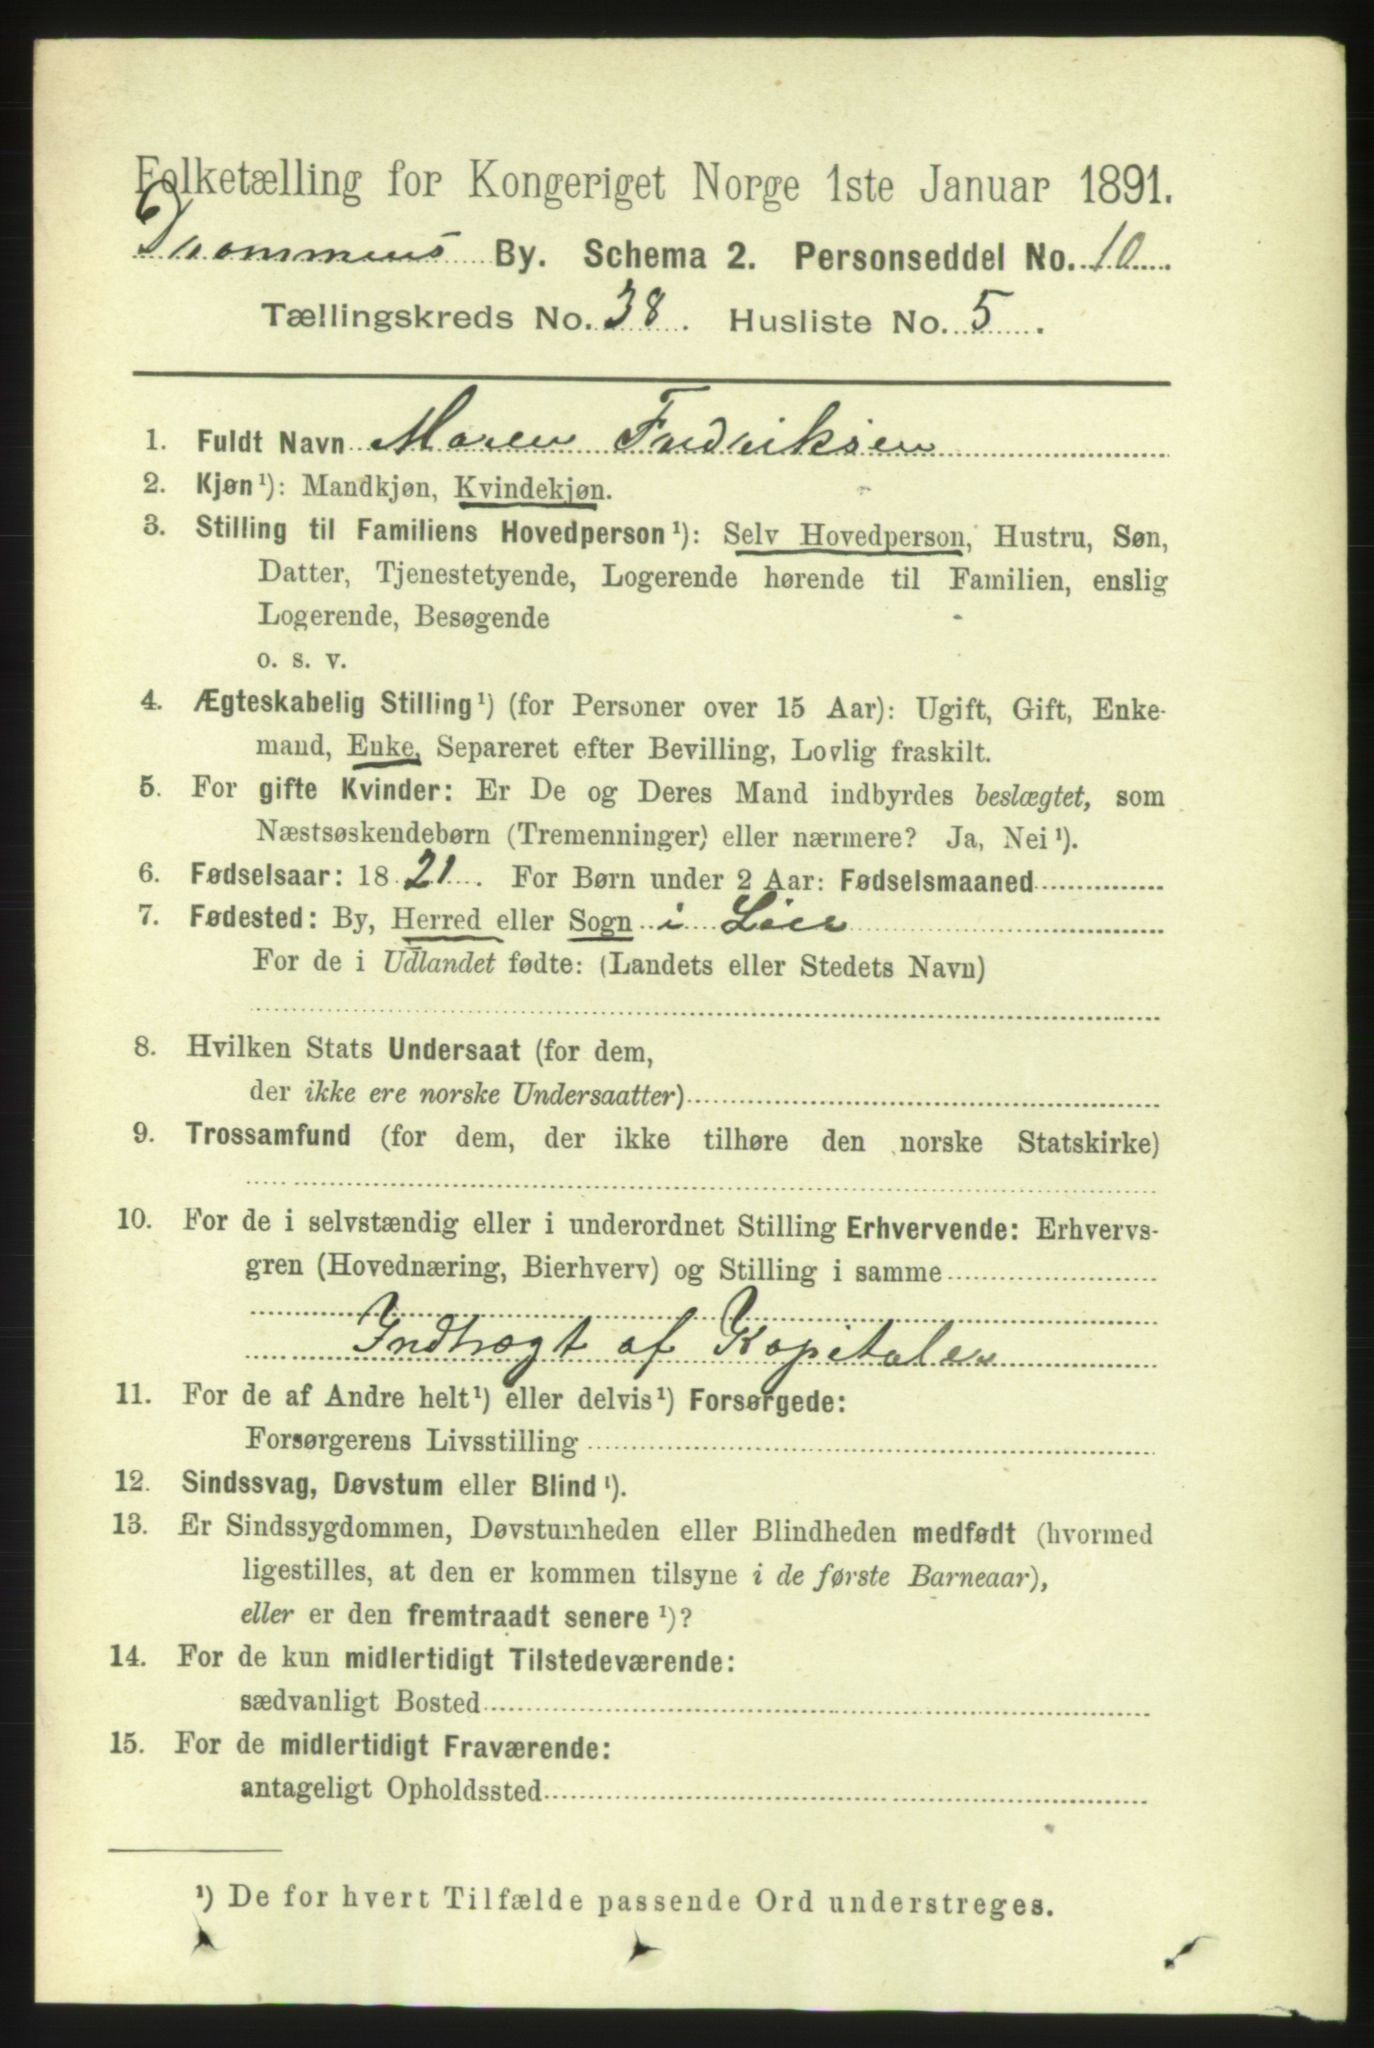 Folketælling for Kongeriget Norge 1ste Januar 1891.
Drammens By. Schema 2. Personseddel No. 10
Tællingskreds No. 38. Husliste No. 5.
1. Fuldt Navn Maren Fredriksen
2. Kjøn¹): Mandkjøn, Kvindekjøn.
3. Stilling til Familiens Hovedperson¹): Selv Hovedperson, Hustru, Søn,
Datter, Tjenestetyende, Logerende hørende til Familien, enslig
Logerende, Besøgende
o. s. v.
4. Ægteskabelig Stilling¹) (for Personer over 15 Aar): Ugift, Gift, Enke-
mand, Enke, Separeret efter Bevilling, Lovlig fraskilt.
5. For gifte Kvinder: Er De og Deres Mand indbyrdes beslægtet, som
Næstsøskendebørn (Tremenninger) eller nærmere? Ja, Nei¹).
6. Fødselsaar: 1821. For Børn under 2 Aar: Fødselsmaaned
7. Fødested: By, Herred eller Sogn i Lier
For de i Udlandet fødte: (Landets eller Stedets Navn)
8. Hvilken Stats Undersaat (for dem,
der ikke ere norske Undersaatter)
9. Trossamfund (for dem, der ikke tilhøre den norske Statskirke)
10. For de i selvstændig eller i underordnet Stilling Erhvervende: Erhvervs-
gren (Hovednæring, Bierhverv) og Stilling i samme
Indtrægt af Kapitaler
11. For de af Andre helt¹) eller delvis¹) Forsørgede:
Forsørgerens Livsstilling
12. Sindssvag, Døvstum eller Blind¹).
13. Er Sindssygdommen, Døvstumheden eller Blindheden medfødt (hvormed
ligestilles, at den er kommen tilsyne i de første Barneaar),
eller er den fremtraadt senere¹)?
14. For de kun midlertidigt Tilstedeværende:
sædvanligt Bosted
15. For de midlertidigt Fraværende:
antageligt Opholdssted
¹) De for hvert Tilfælde passende Ord understreges.